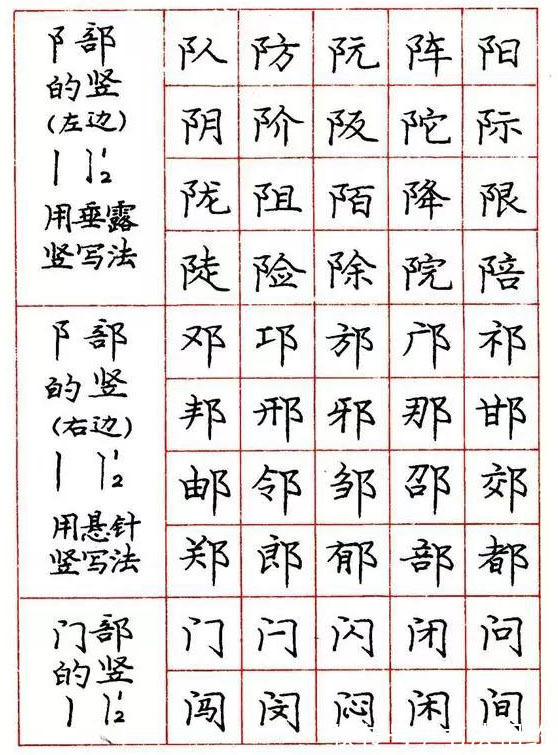 阝部
的竖
(左边)
丨 丨1 2
用垂露
竖写法
队 防 阮 阵 阳
阴 阶 阪 陀 际
陇 阻 陌 降 限
陡 险 除 院 陪
阝部
的竖
(右边)
丨 丨1 2
用悬针
竖写法
邓 邛 邡 邝 祁
邦 邢 邪 那 邯
邮 邻 邹 邵 郊
郑 郎 郁 部 都
门部
的竖
丨 丨1 2
门 闩 闪 闭 问
闯 闵 闷 闲 间